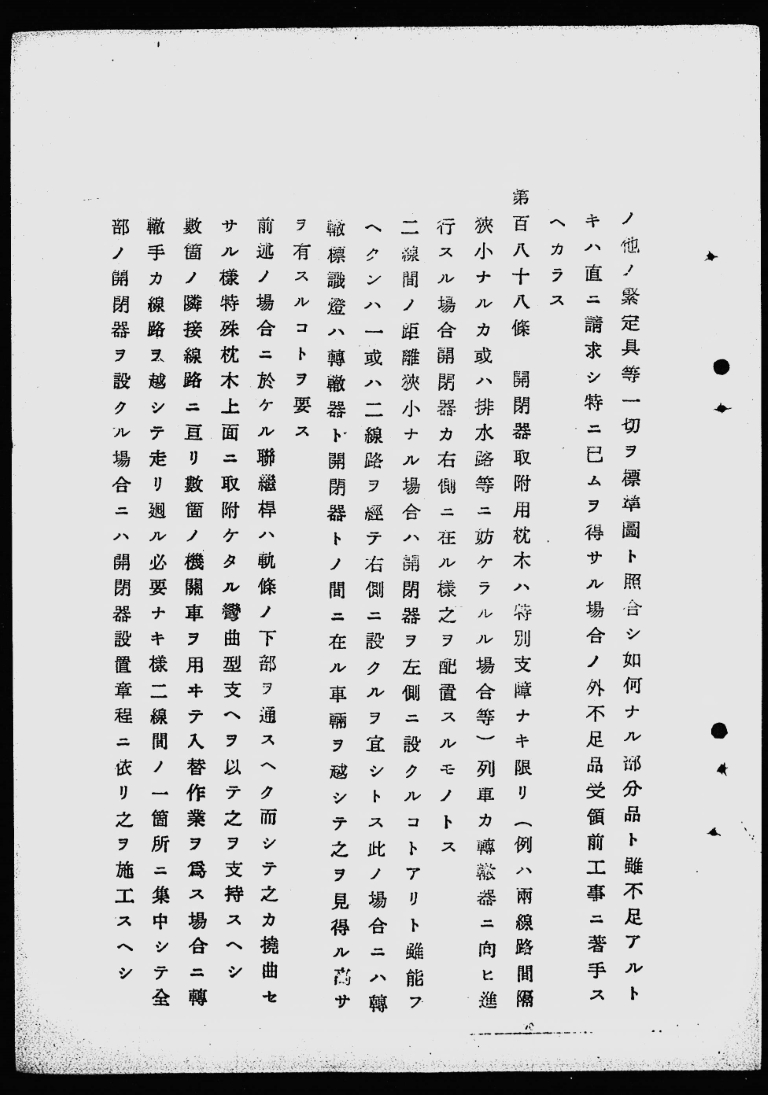 ノ他ノ緊定具等一切ヲ標準圖ト照合シ如何ナル部分品ト雖不足アルト
キハ直ニ請求シ特ニ已ムヲ得サル場合ノ外不足品受領前工事ニ著手ス
ヘカラス
第百八十八條　開閉器取附用枕木ハ特別支障ナキ限リ（例ハ兩線路間隔
狹小ナルカ或ハ排水路等ニ妨ケラルル場合等）列車カ轉轍器ニ向ヒ進
行スル場合開閉器カ右側ニ在ル樣之ヲ配置スルモノトス
二線間ノ距離狹小ナル場合ハ開閉器ヲ左側ニ設クルコトアリト雖能フ
ヘクンハ一或ハ二線路ヲ經テ右側ニ設クルヲ宜シトス此ノ場合ニハ轉
轍標識燈ハ轉轍器ト開閉器トノ間ニ在ル車輛ヲ越シテ之ヲ見得ル高サ
ヲ有スルコトヲ要ス
前述ノ場合ニ於ケル聯繼桿ハ軌條ノ下部ヲ通スヘク而シテ之カ撓曲セ
サル樣特殊枕木上面ニ取附ケタル彎曲型支ヘヲ以テ之ヲ支持スヘシ
數箇ノ隣接線路ニ亘リ數箇ノ機關車ヲ用ヰテ入替作業ヲ爲ス場合ニ轉
轍手カ線路ヲ越シテ走リ廻ル必要ナキ樣二線間ノ一箇所ニ集中シテ全
部ノ開閉器ヲ設クル場合ニハ開閉器設置章程ニ依リ之ヲ施工スヘシ